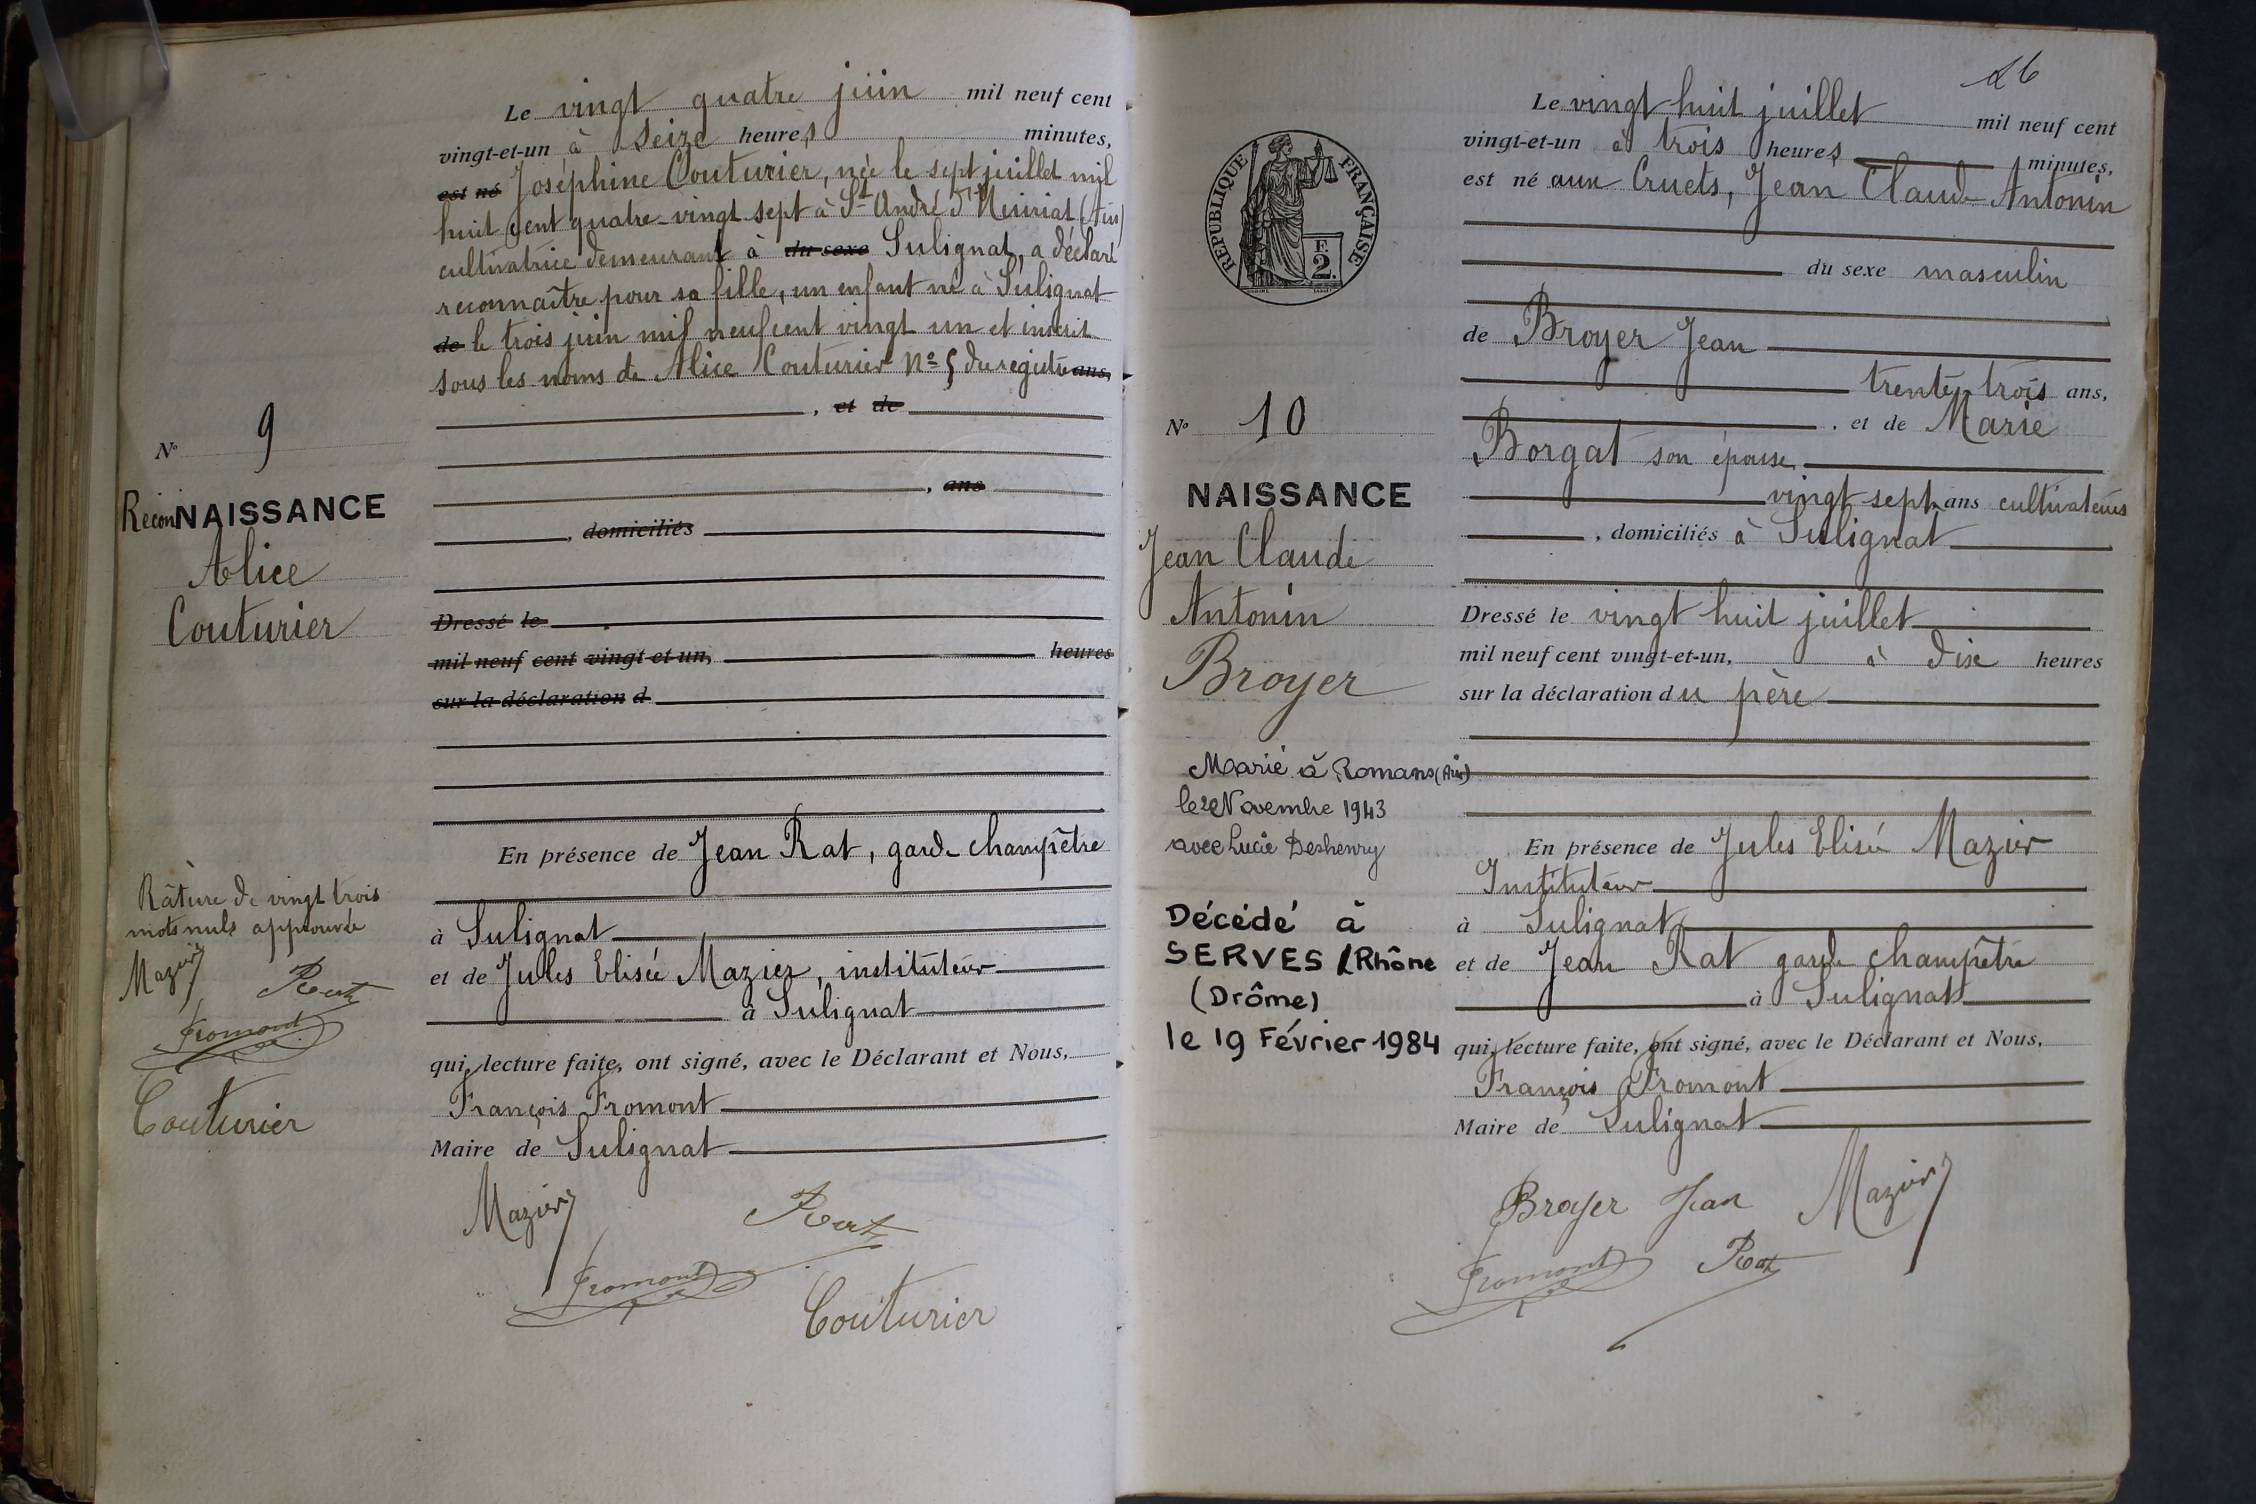 Le vingt quatre juin mil neuf cent
vingt-et-un à seize heures minutes,
est né Joséphine Couturier, née le sept juillet mil
huit cent quatre-vingt sept à St André d'Huiriat (Ain)
cultivatrice demeurant à du sexe Sulignat, a déclaré
reconnaître pour sa fille, un enfant né à Sulignat
de le trois juin mil neuf cent vingt un et inscrit
sous les noms de Alice Couturier No 5 du registre ans,
, et de
, ans
, domiciliés
Dressé le
mil neuf cent vingt-et-un, heures
sur la déclaration d
En présence de Jean Rat, garde champêtre
à Sulignat
et de Jules Elisée Mazier, instituteur
à Sulignat
qui, lecture faite, ont signé, avec le Déclarant et Nous,
François Fromont
Maire de Sulignat
Mazier Rat
Fromont
Couturier
No 9
ReconNAISSANCE
Alice
Couturier
Râture de vingt trois
mots nuls approuvée
Mazier
Rat
Fromont
Couturier
26
RÉPUBLIQUE FRANÇAISE
F.
2.
No 10
NAISSANCE
Jean Claude
Antonin
Broyer
Marié à Romans (Ain)
le Novembre 1943
avec Lucie Deshenry
Décédé à
SERVES /Rhône
(Drôme)
le 19 Février 1984
Le vingt huit juillet mil neuf cent
vingt-et-un à trois heures minutes,
est né aux Cruets, Jean Claude Antonin
du sexe masculin
de Broyer Jean
trente trois ans,
, et de Marie
Borgat son épouse
vingt sept ans cultivateurs
, domiciliés à Sulignat
Dressé le vingt huit juillet
mil neuf cent vingt-et-un, à dix heures
sur la déclaration du père
En présence de Jules Elisée Mazier
Instituteur
à Sulignat
et de Jean Rat garde champêtre
à Sulignat
qui, lecture faite, ont signé, avec le Déclarant et Nous,
François Fromont
Maire de Sulignat
Broyer Jean Mazier
Fromont Rat